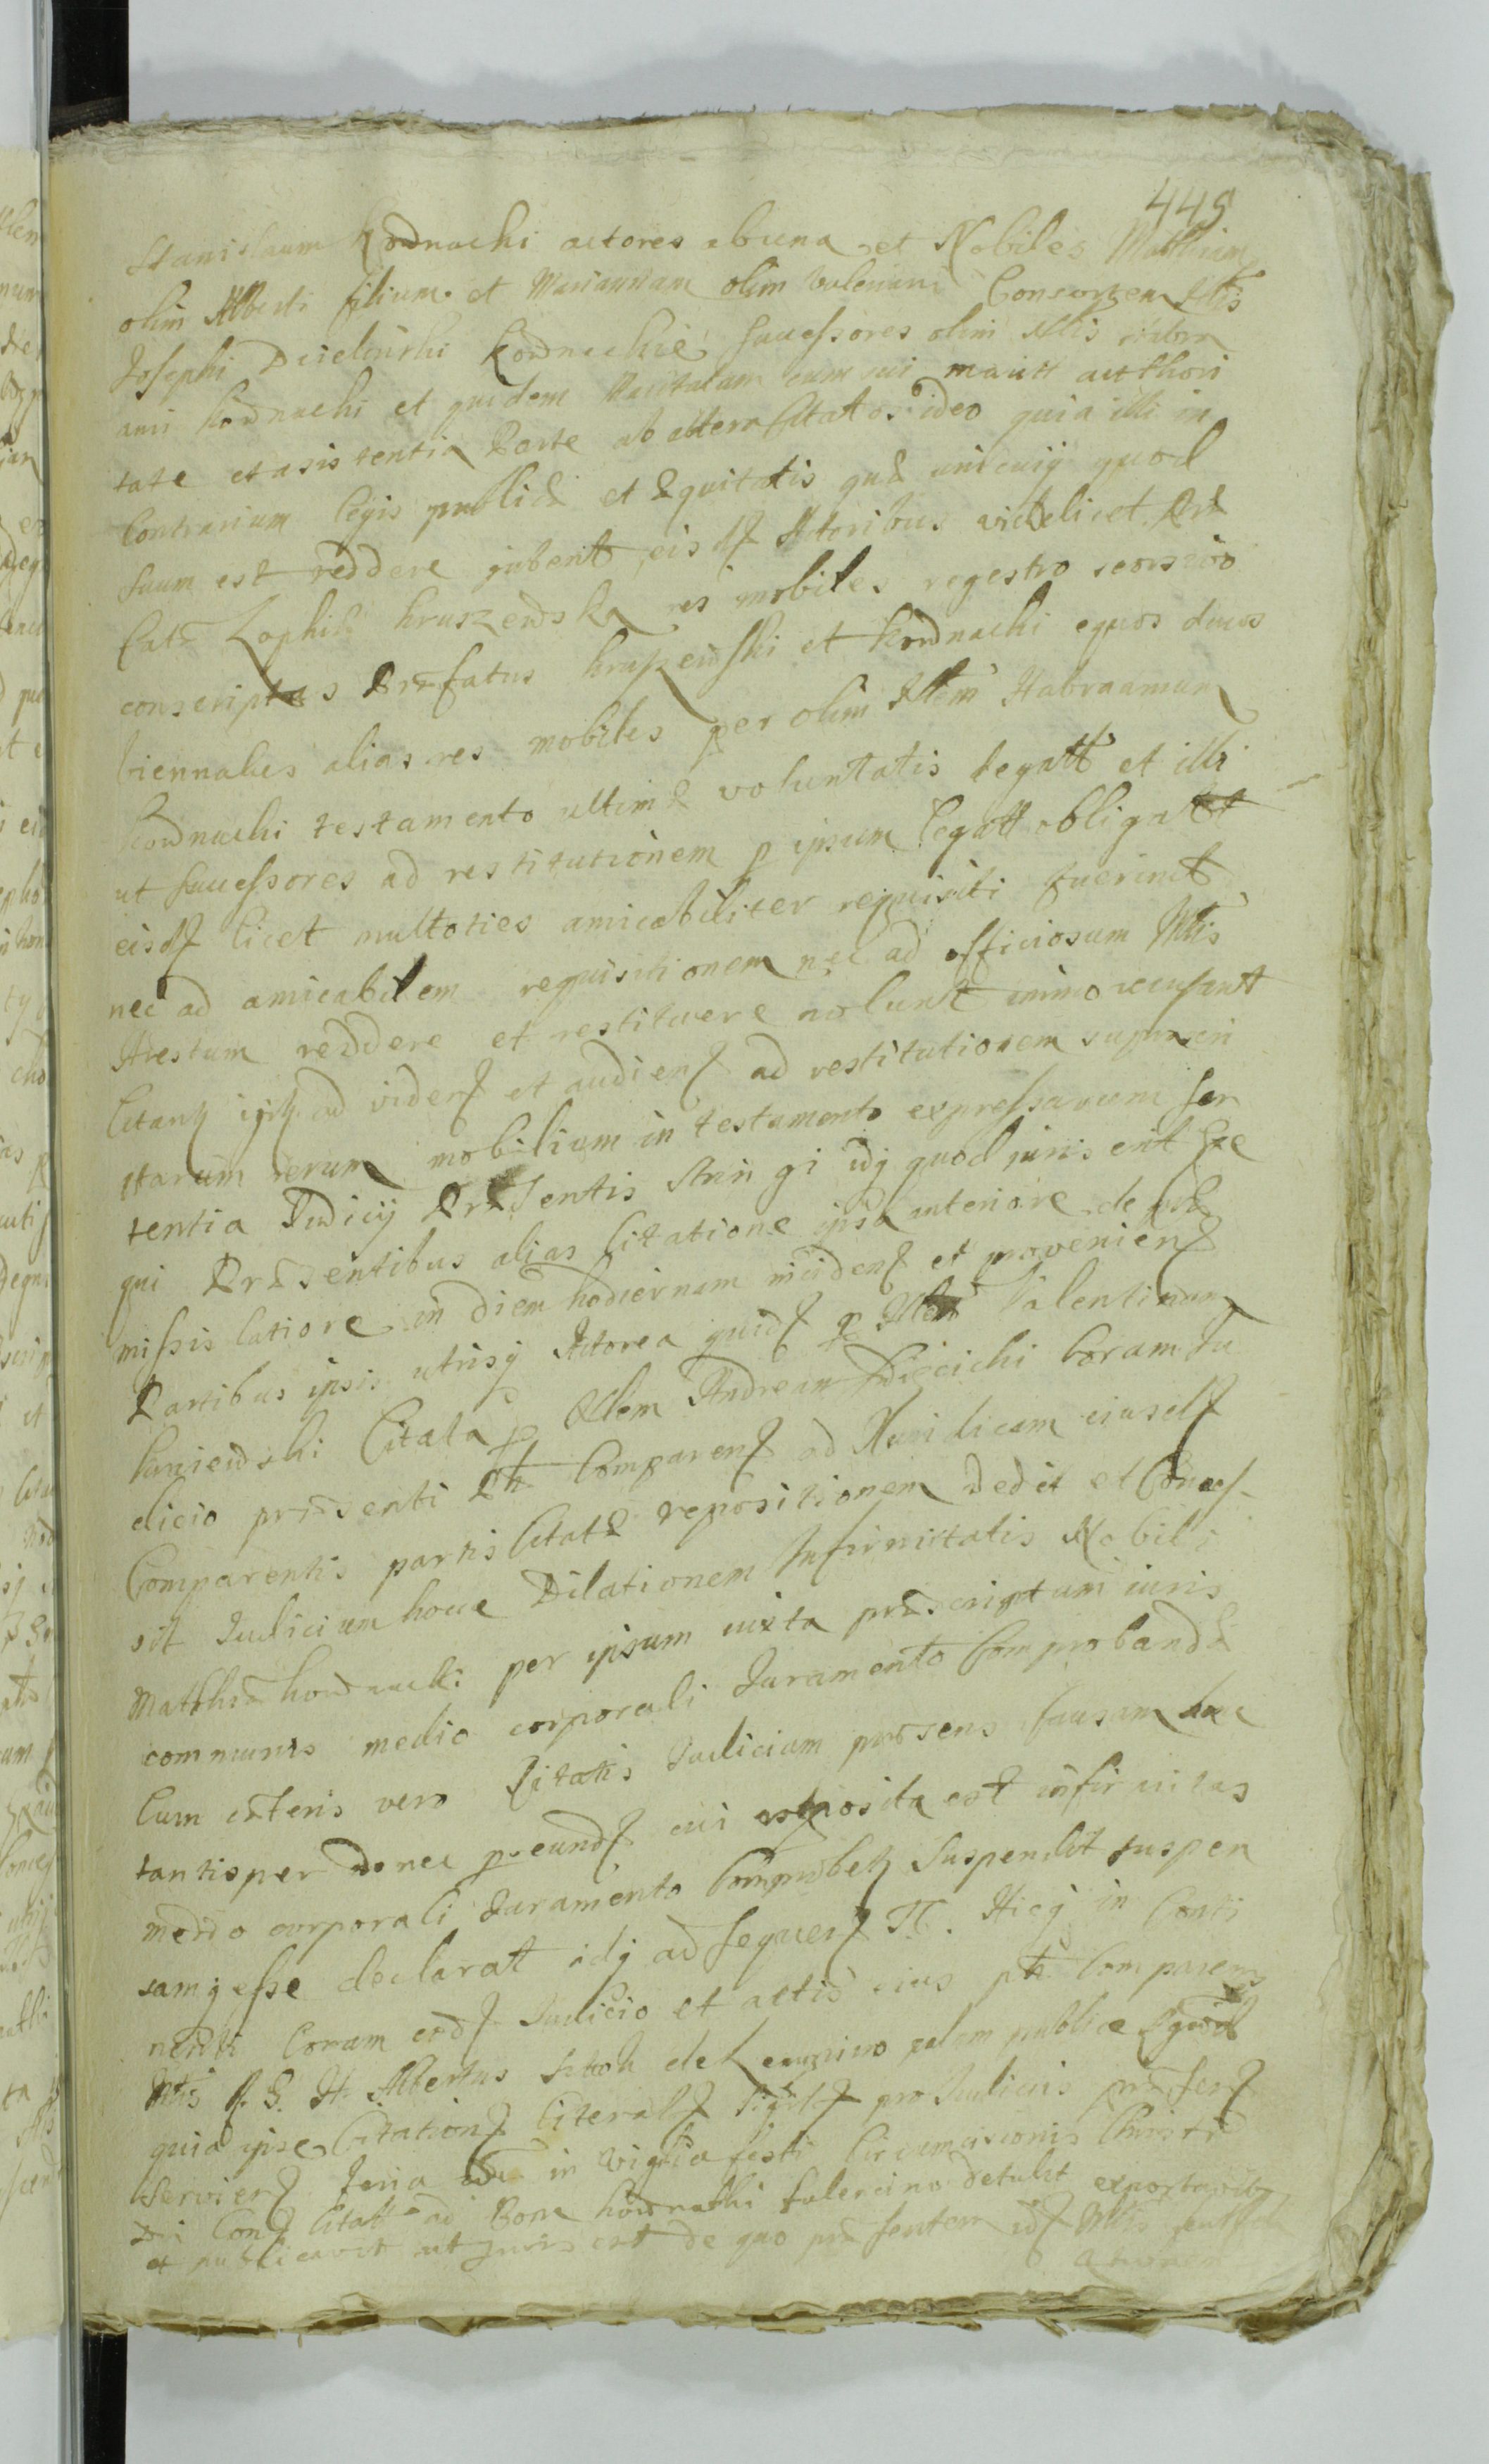 445
Stanislaum Kownacki actores ab una et Nobiles Matthiam
olim Alberti filium et Mariannam olim Valeriani Consortem Nlis
Josephi Dzielinski Kownackie Successores olim Nlis Habra
ami Kownacki et quidem Maritatam cum sui maritt authori
tate et asistentia Parte ab altera Citatos ideo quia illi in
Contrarium legis publicæ et Æquitatis quæ unicuiq quod
suum est reddere jubent eisd Actoribus videlicet Præ
fatæ Zophiæ Kruszewska res mobiles regestro seorsivo
conscriptas Præfatus Kruszewski et Kownacki equos duos
biennales alias res mobiles per olim Nlem Habraamum
Kownacki testamento ultimæ voluntatis legatt et illi
ut Successores ad restitutionem p ipsum legatt obligatt
eisd licet multoties amicabiliter requisiti fuerint
nec ad amicabilem requisitionem nec ad officiosum Mtis
Arestum reddere et restituere nolunt immo recusant
Citant ad videnz et audienz ad restitutionem suprascri
ptarum rerum mobilium in testamento expressarum Sen
tentia Judicij Præsentis Strin gi idq quod juris erit
qui Præsentibus alias Citatione ipsa anteriore de præ
missis latiore in diem hodiernam incidenz et provenienz
Partibus ipsis utrisq Actorea quidz p Nlem Valentinum
Citata p Nlem Andream Coram Ju
dicio præsenti Ptr Comparenz ad Juridicam eiusdz
Comparentis partis Citatæ repositionem Dedit et Conces
sit Judicium hocce Dilationem Infirmitatis Nobili
Matthiæ Kownacki per ipsum iuxta præscriptum iuris
communis medio corporali Juramento Comprobandæ
Cum cæteris vero Citatis Judicium præsens Causam hanc
tantisper donec p eundz cui exposita est infirmitas
medio corporali Juramento Comprobetz Suspendit suspen
samq esse declarat idq ad sequenz TT. Hicq in Conti
nenti Coram eodz Judicio et actis eius ptr Comparens
Mtis R. G. H. Albertus de palam publice
quia ipse Citationz literalz pro Judiciis præsenz
Servienz feria in vigilia festi Circumcisionis Christi
Citatt ad Bona Kownacki detulit exportavit
et publicavit ut juris est de quo præsentem idz Mtis